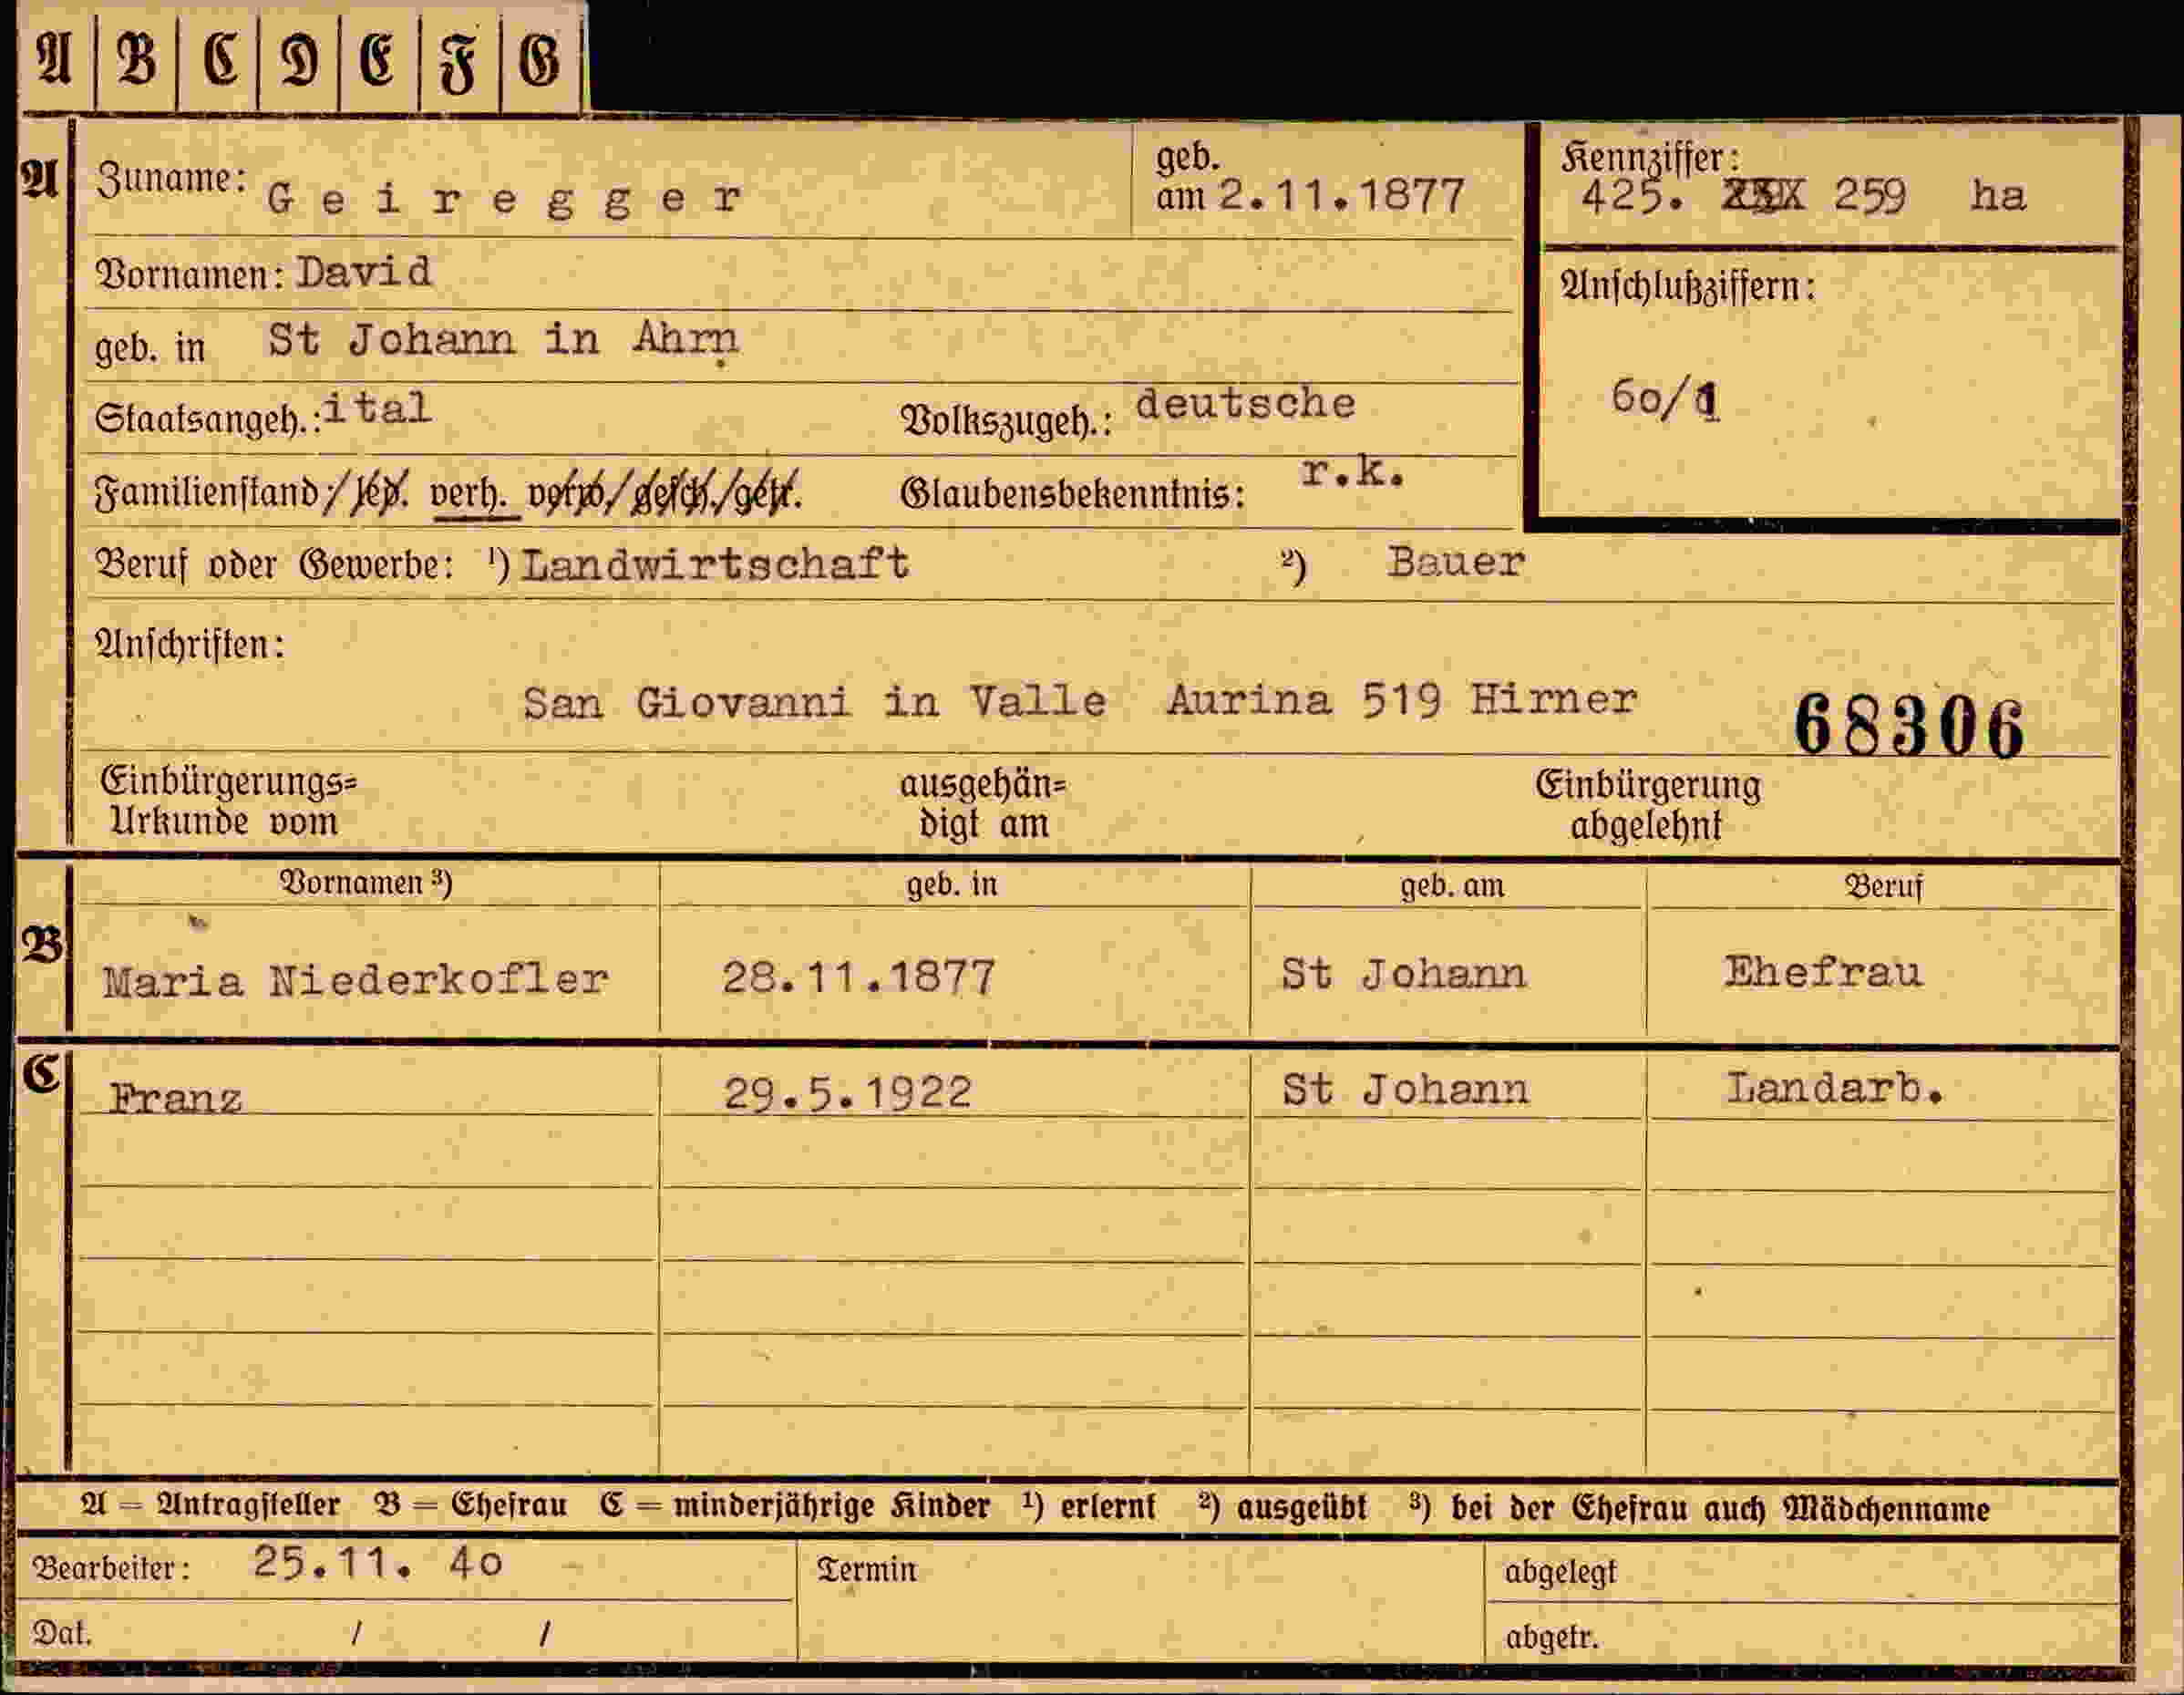 A B C D E F G
A Zuname: Geiregger geb. am 2.11.1877 Kennziffer: 425. 259 ha
Vornamen: David Anschlußziffern:
geb. in St Johann in Ahrn
Staatsangeh.: ital Volkszugeh.: deutsche 60/1
Familienstand: led. verh. verw./gesch./getr. Glaubensbekenntnis: r.k.
Beruf oder Gewerbe: ¹) Landwirtschaft ²) Bauer
Anschriften:
San Giovanni in Valle Aurina 519 Hirner 68306
Einbürgerungs=
Urkunde vom
ausgehän=
digt am
Einbürgerung
abgelehnt
Vornamen ³) geb. in geb. am Beruf
B Maria Niederkofler 28.11.1877 St Johann Ehefrau
C Franz 29.5.1922 St Johann Landarb.
A = Antragsteller B = Ehefrau C = minderjährige Kinder ¹) erlernt ²) ausgeübt ³) bei der Ehefrau auch Mädchenname
Bearbeiter: 25.11. 40 Termin abgelegt
Dat. / / abgetr.